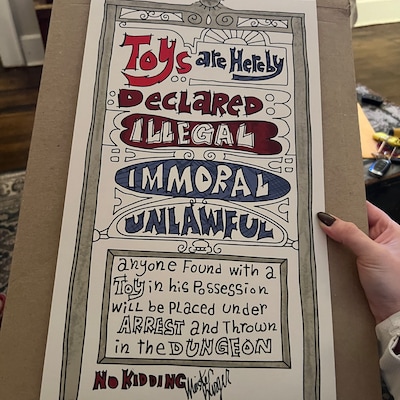 Toys are Hereby
Declared
ILLEGAL
IMMORAL
UNLAWFUL
anyone Found with a
Toy in his Possession
will be Placed under
ARREST and Thrown
in the DUNGEON
No KIDDING